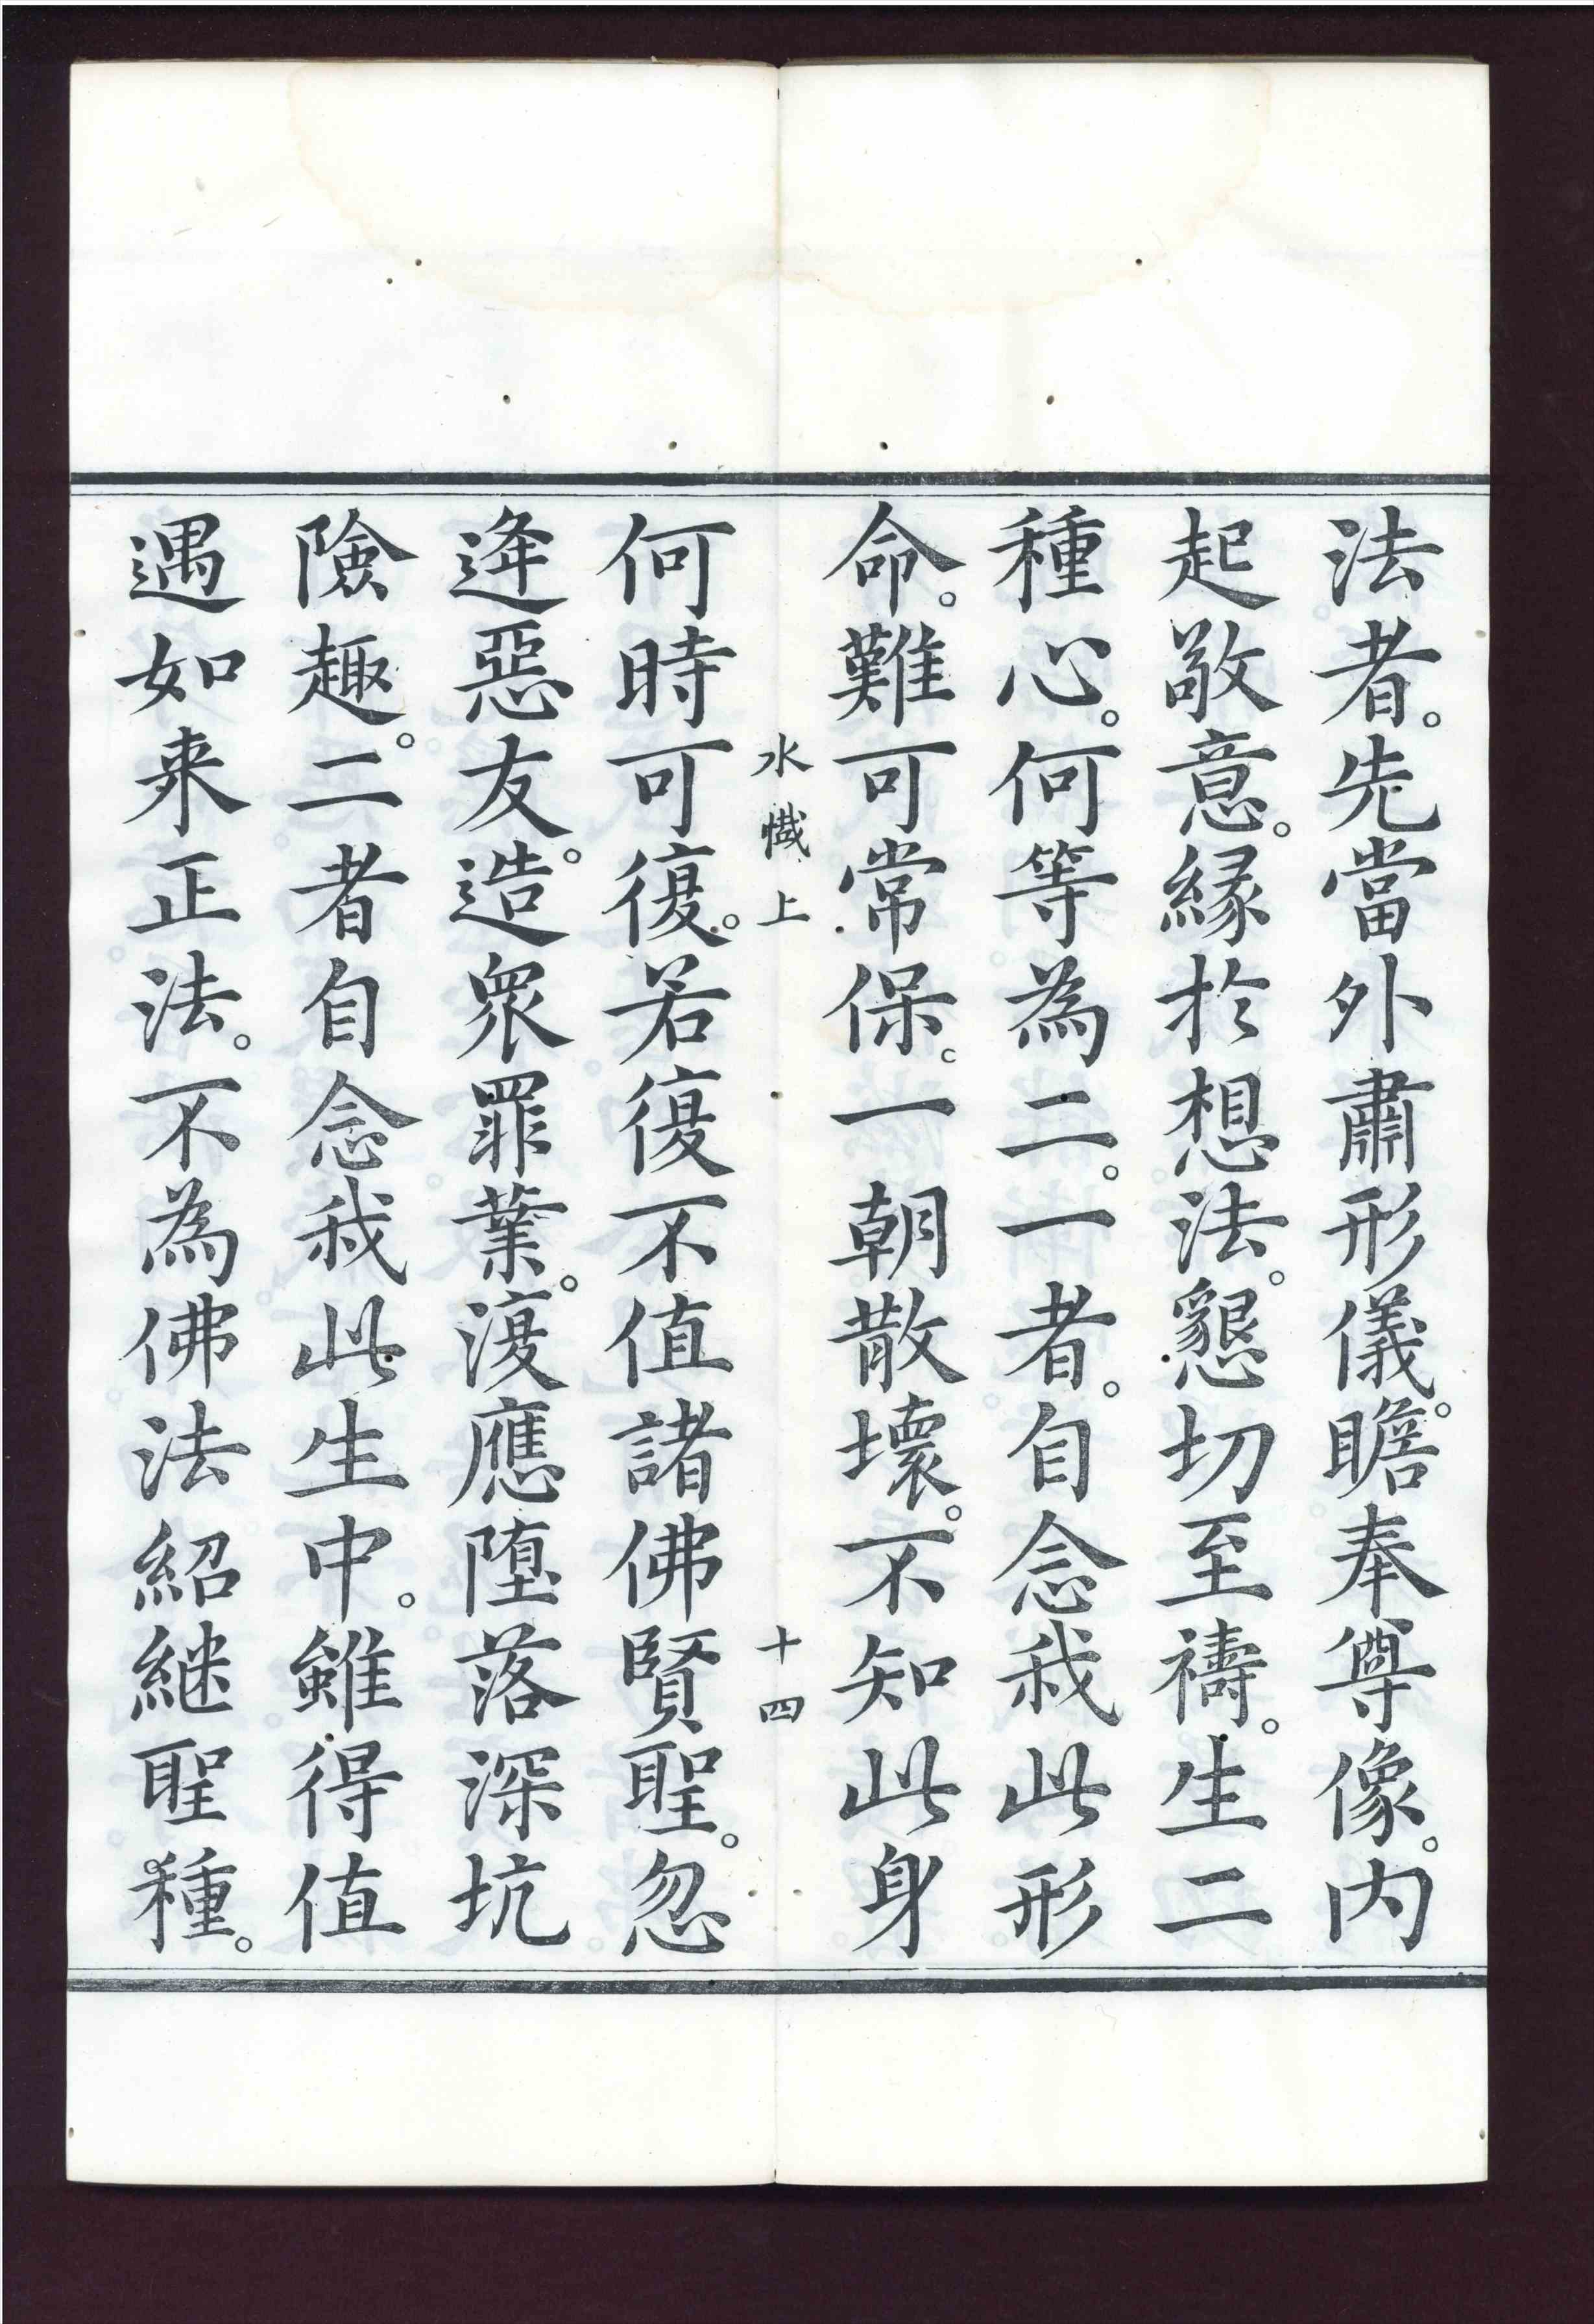 法者。先當外肅形儀。瞻奉尊像。内
起敬意。緣於想法。懇切至禱。生二
種心。何等為二。一者。自念我此形
命。難可常保。一朝散壞。不知此身
水懺上 十四
何時可復。若復不值諸佛賢聖。忽
逢惡友。造衆罪業。復應墮落深坑
險趣。二者自念我此生中。雖得值
遇如来正法。不為佛法紹継聖種。